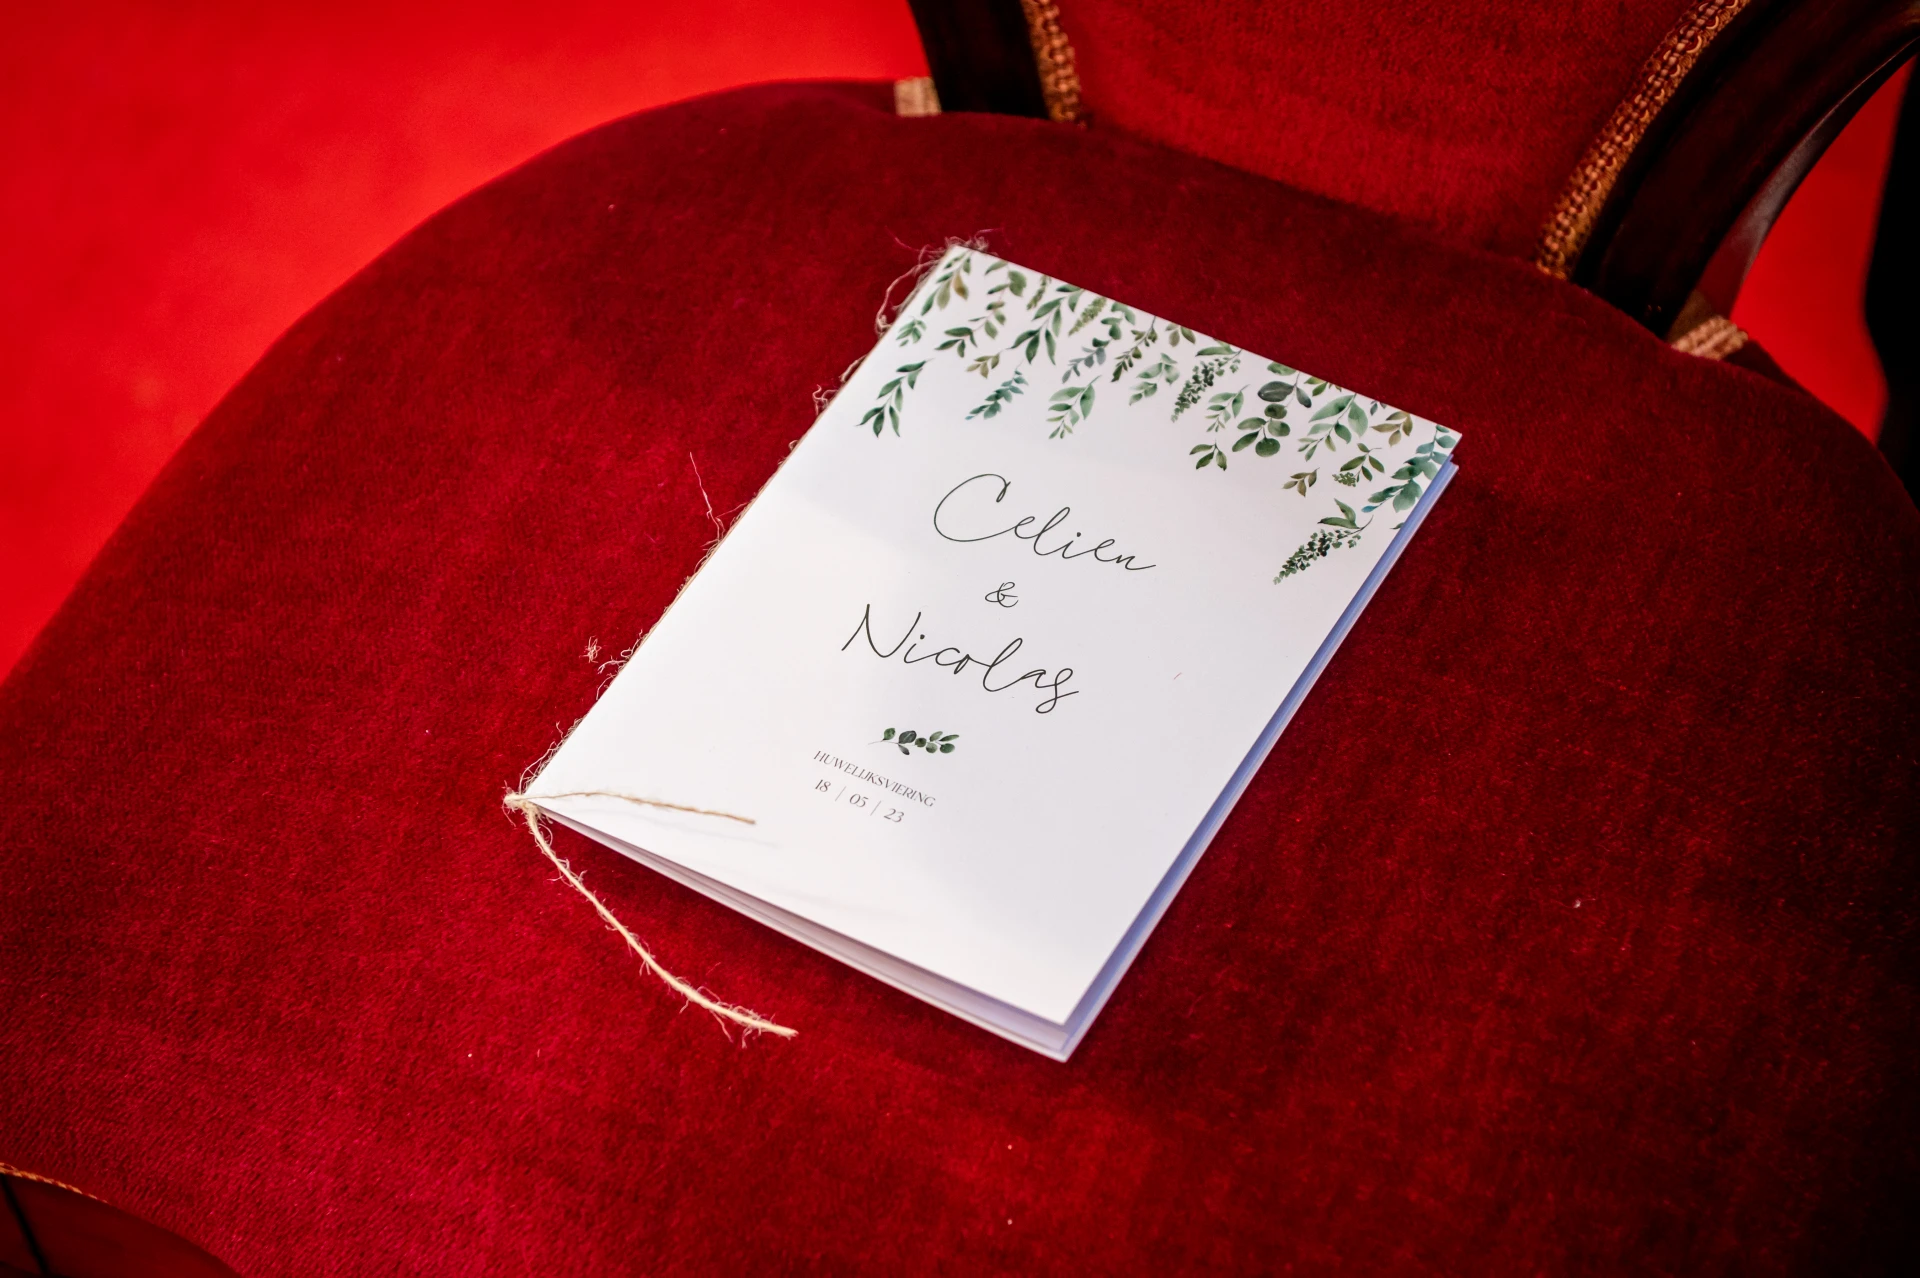 Celien
&
Nicolas
HUWELIJKSVIERING
18 | 05 | 23